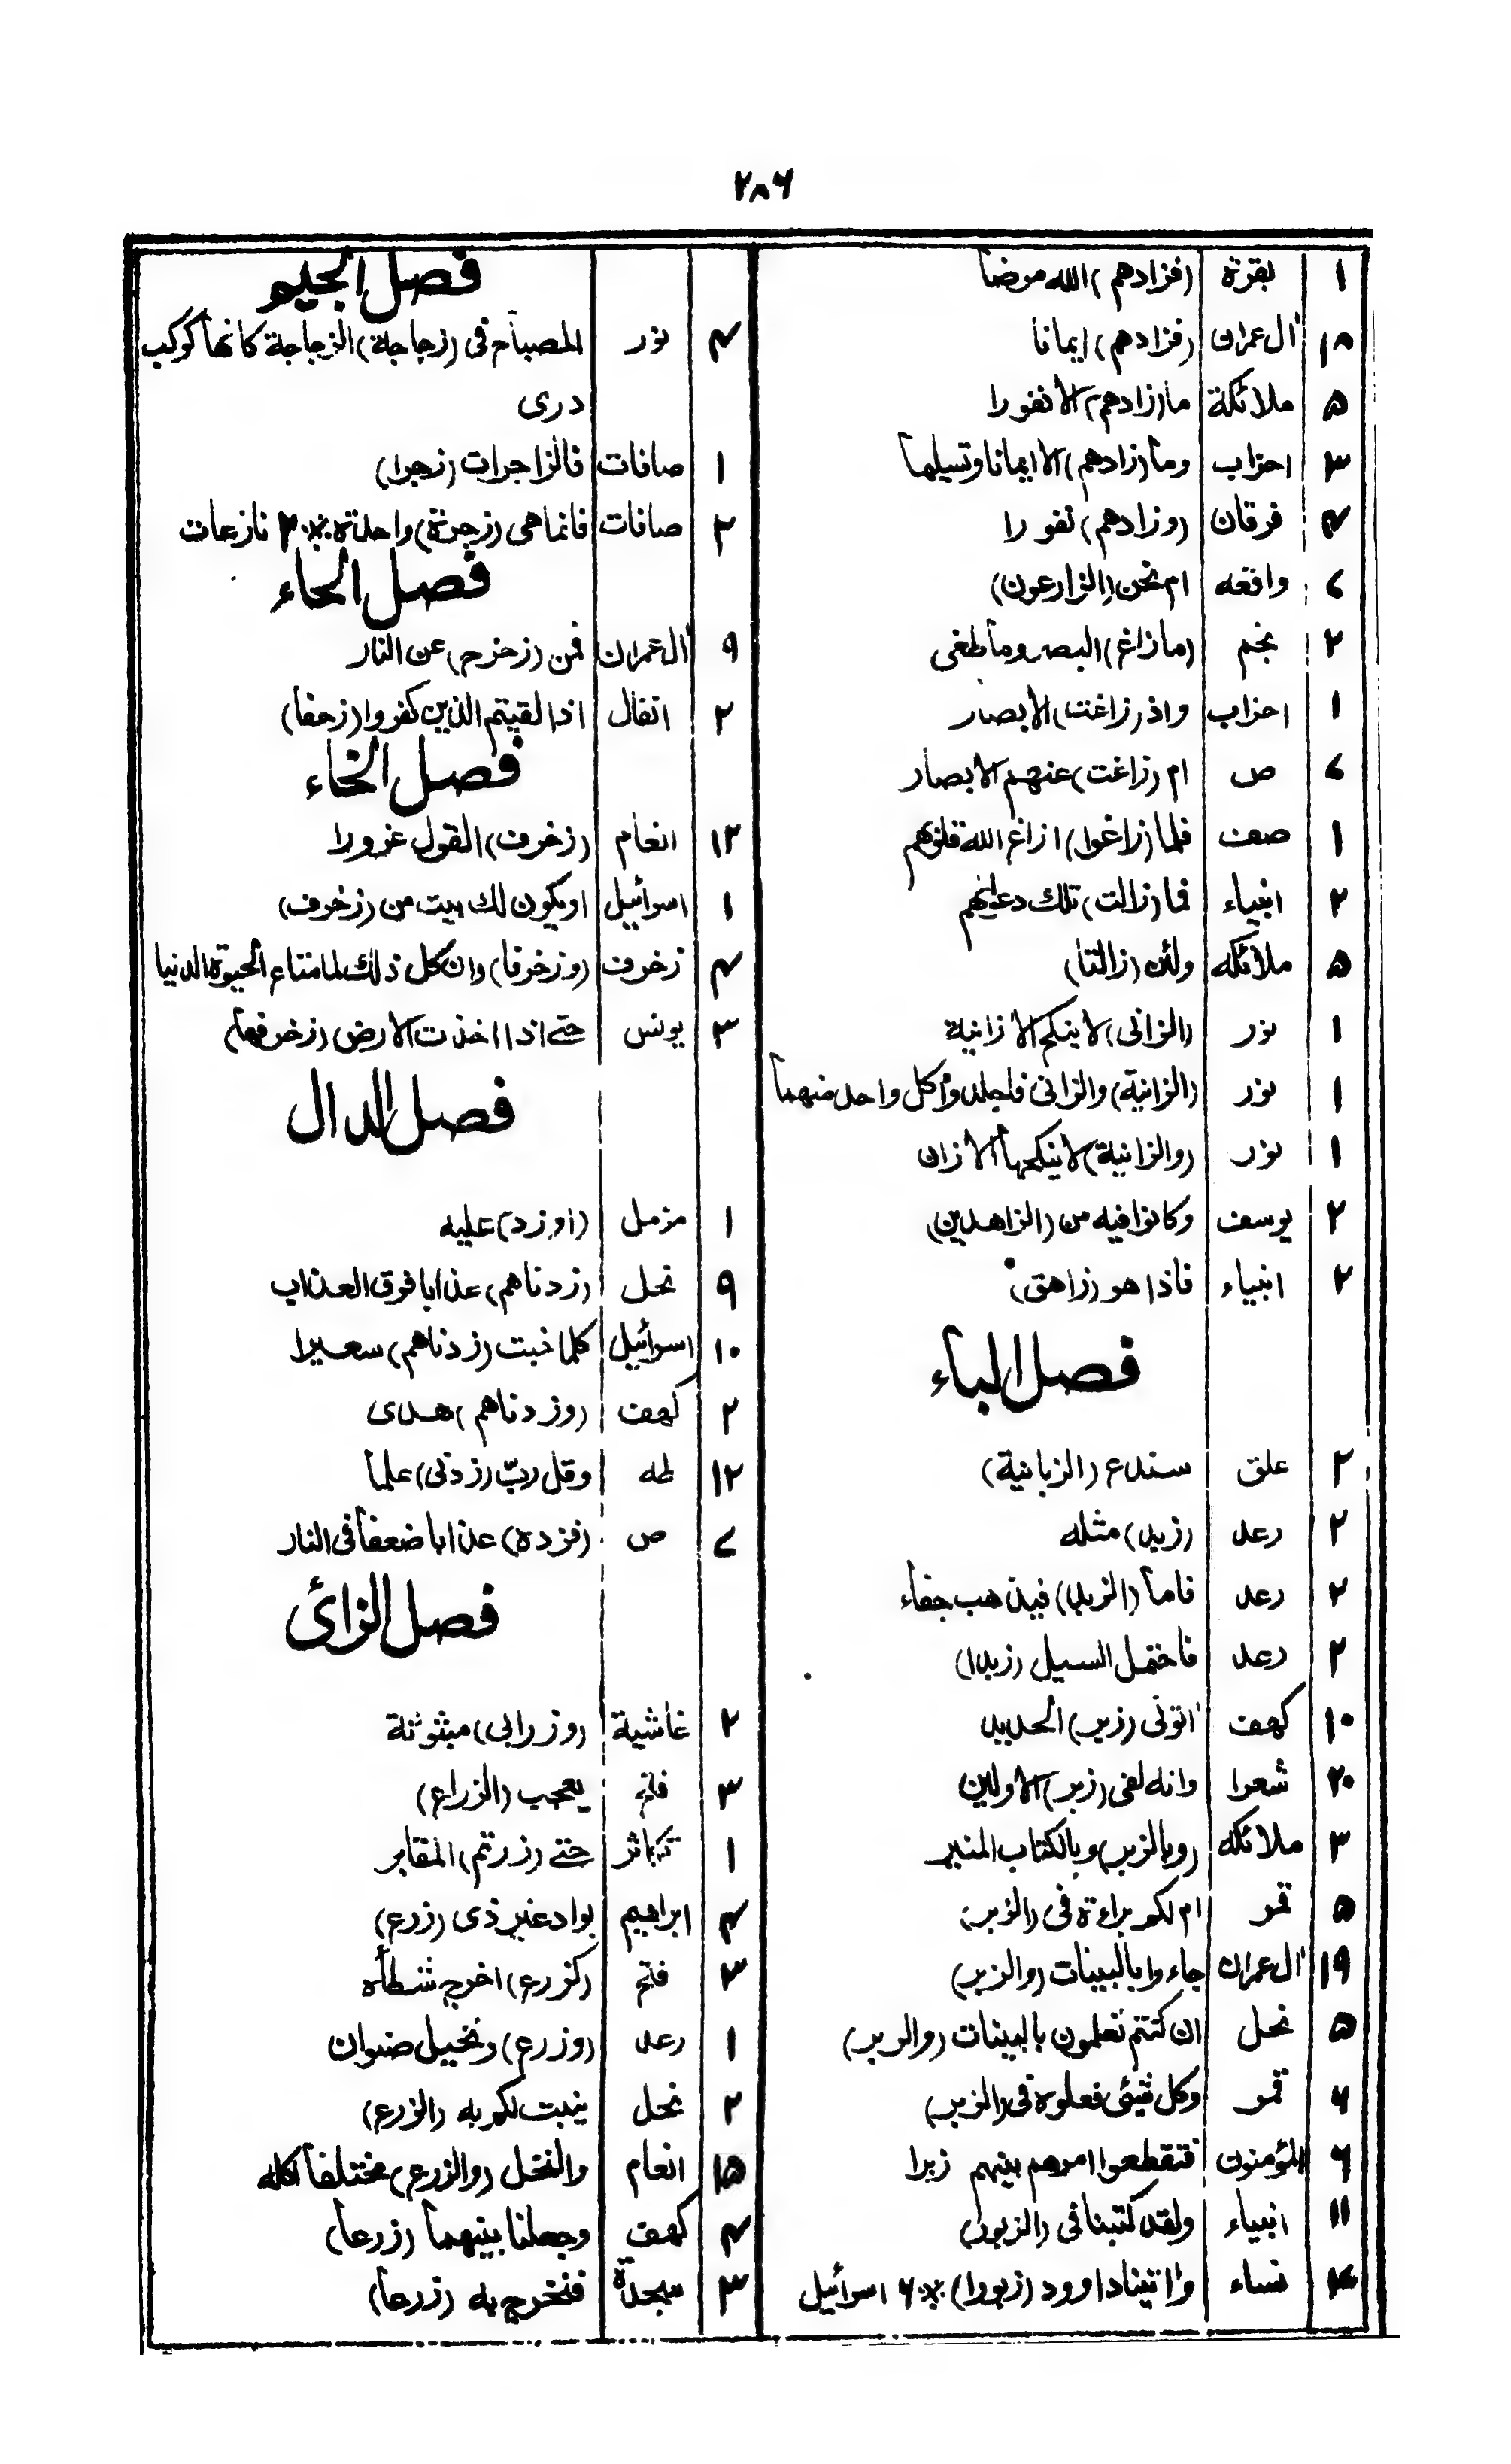 ٢٨٦
١ بقرة (فزادهم) الله مرضا
١٨ آل عمران (فزادهم) ايمانا
٥ ملائكة ما (زادهم) الا نفورا
٣ احزاب وما (زادهم) الا ايمانا وتسليما
٤ فرقان (وزادهم) نفورا
٢ واقعه ام نحن (الزارعون)
٢ نجم (ما زاغ) البصر وما طغى
١ احزاب واذ (زاغت) الابصار
٤ ص ام (زاغت) عنهم الابصار
١ صف فلما (زاغوا) ازاغ الله قلوبهم
٢ انبياء فما (زالت) تلك دعويهم
٥ ملائكه ولئن (زالتا)
١ نور (الزانى) لا ينكح الا زانية
١ نور (الزانية) والزانى فاجلدوا كل واحد منهما
١ نور (والزانية) لا ينكحها الا زان
٢ يوسف وكانوا فيه من (الزاهدين)
٢ انبياء فاذا هو (زاهق)
فصل الباء
٢ علق سندع (الزبانية)
٢ رعد (زبد) مثله
٢ رعد فاما (الزبد) فيذهب جفاء
٢ رعد فاحتمل السيل (زبدا)
١٠ كهف اتونى (زبر) الحديد
٢٠ شعرا وانه لفى (زبر) الاولين
٣ ملائكه (وبالزبر) وبالكتاب المنير
٥ قمر ام لكم براءة فى (الزبر)
١٩ آل عمران جاءوا بالبينات (والزبر)
٥ نحل ان كنتم تعلمون بالبينات (والزبر)
٦ قمر وكل شيئ فعلوه فى (الزبر)
٦ المؤمنون فتقطعوا امرهم بينهم زبرا
١١ انبياء ولقد كتبنا فى (الزبور)
نساء واتينا داوود (زبورا) ٪ ٦ اسرائيل
فصل الجيم
٤ نور المصباح فى (زجاجة) الزجاجة كانها كوكب
درى
١ صافات فالزاجرات (زجرا)
٢ صافات فانما هى (زجرة) واحدة ٪ ٢ نازعات
فصل الحاء
٩ آل عمران فمن (زحزح) عن النار
٢ انفال اذا لقيتم الذين كفروا (زحفا)
فصل الخاء
١٣ انعام (زخرف) القول غرورا
١ اسرائيل او يكون لك بيت من (زخرف)
٤ زخرف (وزخرفا) وان كل ذلك لما متاع الحيوة الدنيا
٣ يونس حتى اذا اخذت الارض (زخرفها)
فصل الدال
١ مزمل (او زد) عليه
٩ نحل (زدناهم) عذابا فوق العذاب
١٠ اسرائيل كلما خبت (زدناهم) سعيرا
٢ كهف (وزدناهم) هدى
١٢ طه وقل ربّ (زدنى) علما
٤ ص (فزده) عذابا ضعفا فى النار
فصل الزائ
٢ غاشية (وزرابى) مبثوثة
٣ فتح يعجب (الزراع)
١ تكاثر حتى (زرتم) المقابر
٤ ابراهيم بواد غير ذى (زرع)
٣ فتح (كزرع) اخرج شطأه
١ رعد (وزرع) ونخيل صنوان
٢ نحل ينبت لكم به (الزرع)
١٥ انعام والنخل (والزرع) مختلفا اكله
٤ كهف وجعلنا بينهما (زرعا)
٣ سجدة فنخرج به (زرعا)